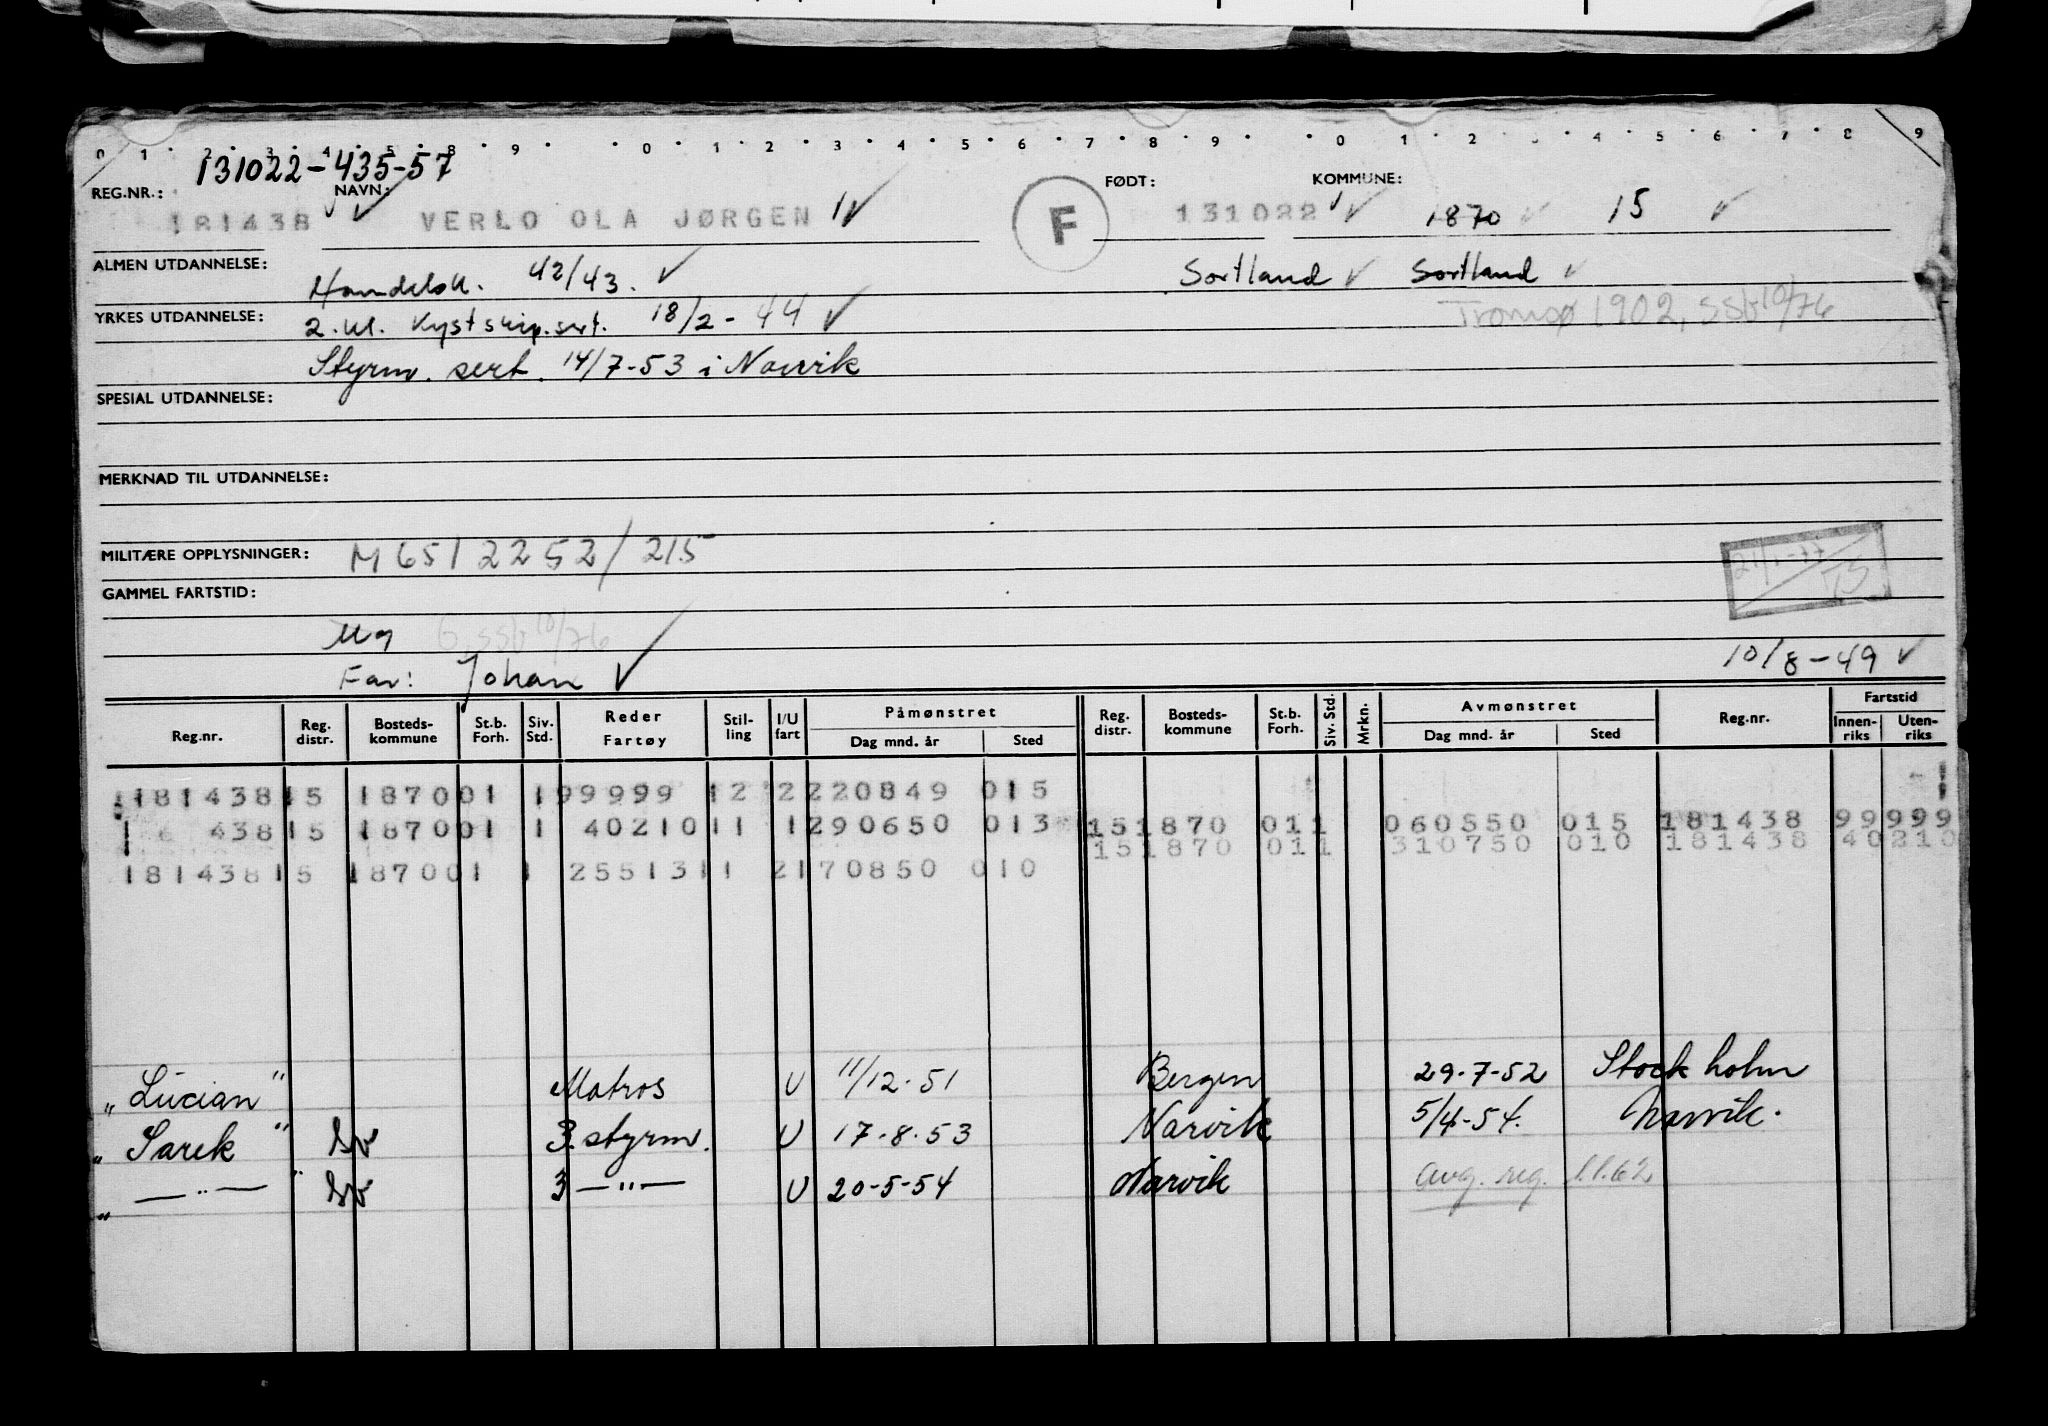 0 1 2 3 4 5 8 9 0 1 2 3 4 5 6 7 8 9 0 1 2 3 4 5 6 7 8 9
131022-435-57
REG.NR.: NAVN: FØDT: KOMMUNE:
181438 VERLO OLA JØRGEN F 131022 1870 15
ALMEN UTDANNELSE: Handelssk. 42/43. Sortland Sortland
YRKES UTDANNELSE: 2.kl. Kystskip.sert. 18/2-44 Tromsø 1902, SSB 10/76
Styrm. sert. 14/7-53 i Narvik
SPESIAL UTDANNELSE:
MERKNAD TIL UTDANNELSE:
MILITÆRE OPPLYSNINGER: M6512252/215
21/1-77
GAMMEL FARTSTID:
Ug G, SSB 10/76
Far: Johan 10/8-49
Reg.nr. Reg. distr. Bosteds-kommune St.b. Forh. Siv. Std. Reder Fartøy Stil-ling I/U fart Påmønstret Dag mnd. år Sted Reg. distr. Bosteds-kommune St.b. Forh. Siv. Std. Mrkn. Avmønstret Dag mnd. år Sted Reg.nr. Fartstid Innen-riks Uten-riks
181438 15 1870 01 1 99999 12 2 220849 015
438 15 1870 01 1 40210 11 1 290650 013 15 1870 01 1 060550 015 181438 99999
15 1870 01 1 310750 010 181438 40210
181438 15 1870 01 1 25513 11 2 170850 010
"Lucian" Matros U 11/12-51 Bergen 29-7-52 Stockholm
"Sarek" 3. styrm. U 17-8-53 Narvik 5/4-54. Narvik.
" —"— " 3 —"— U 20-5-54 Narvik avg. reg. 1.1.62